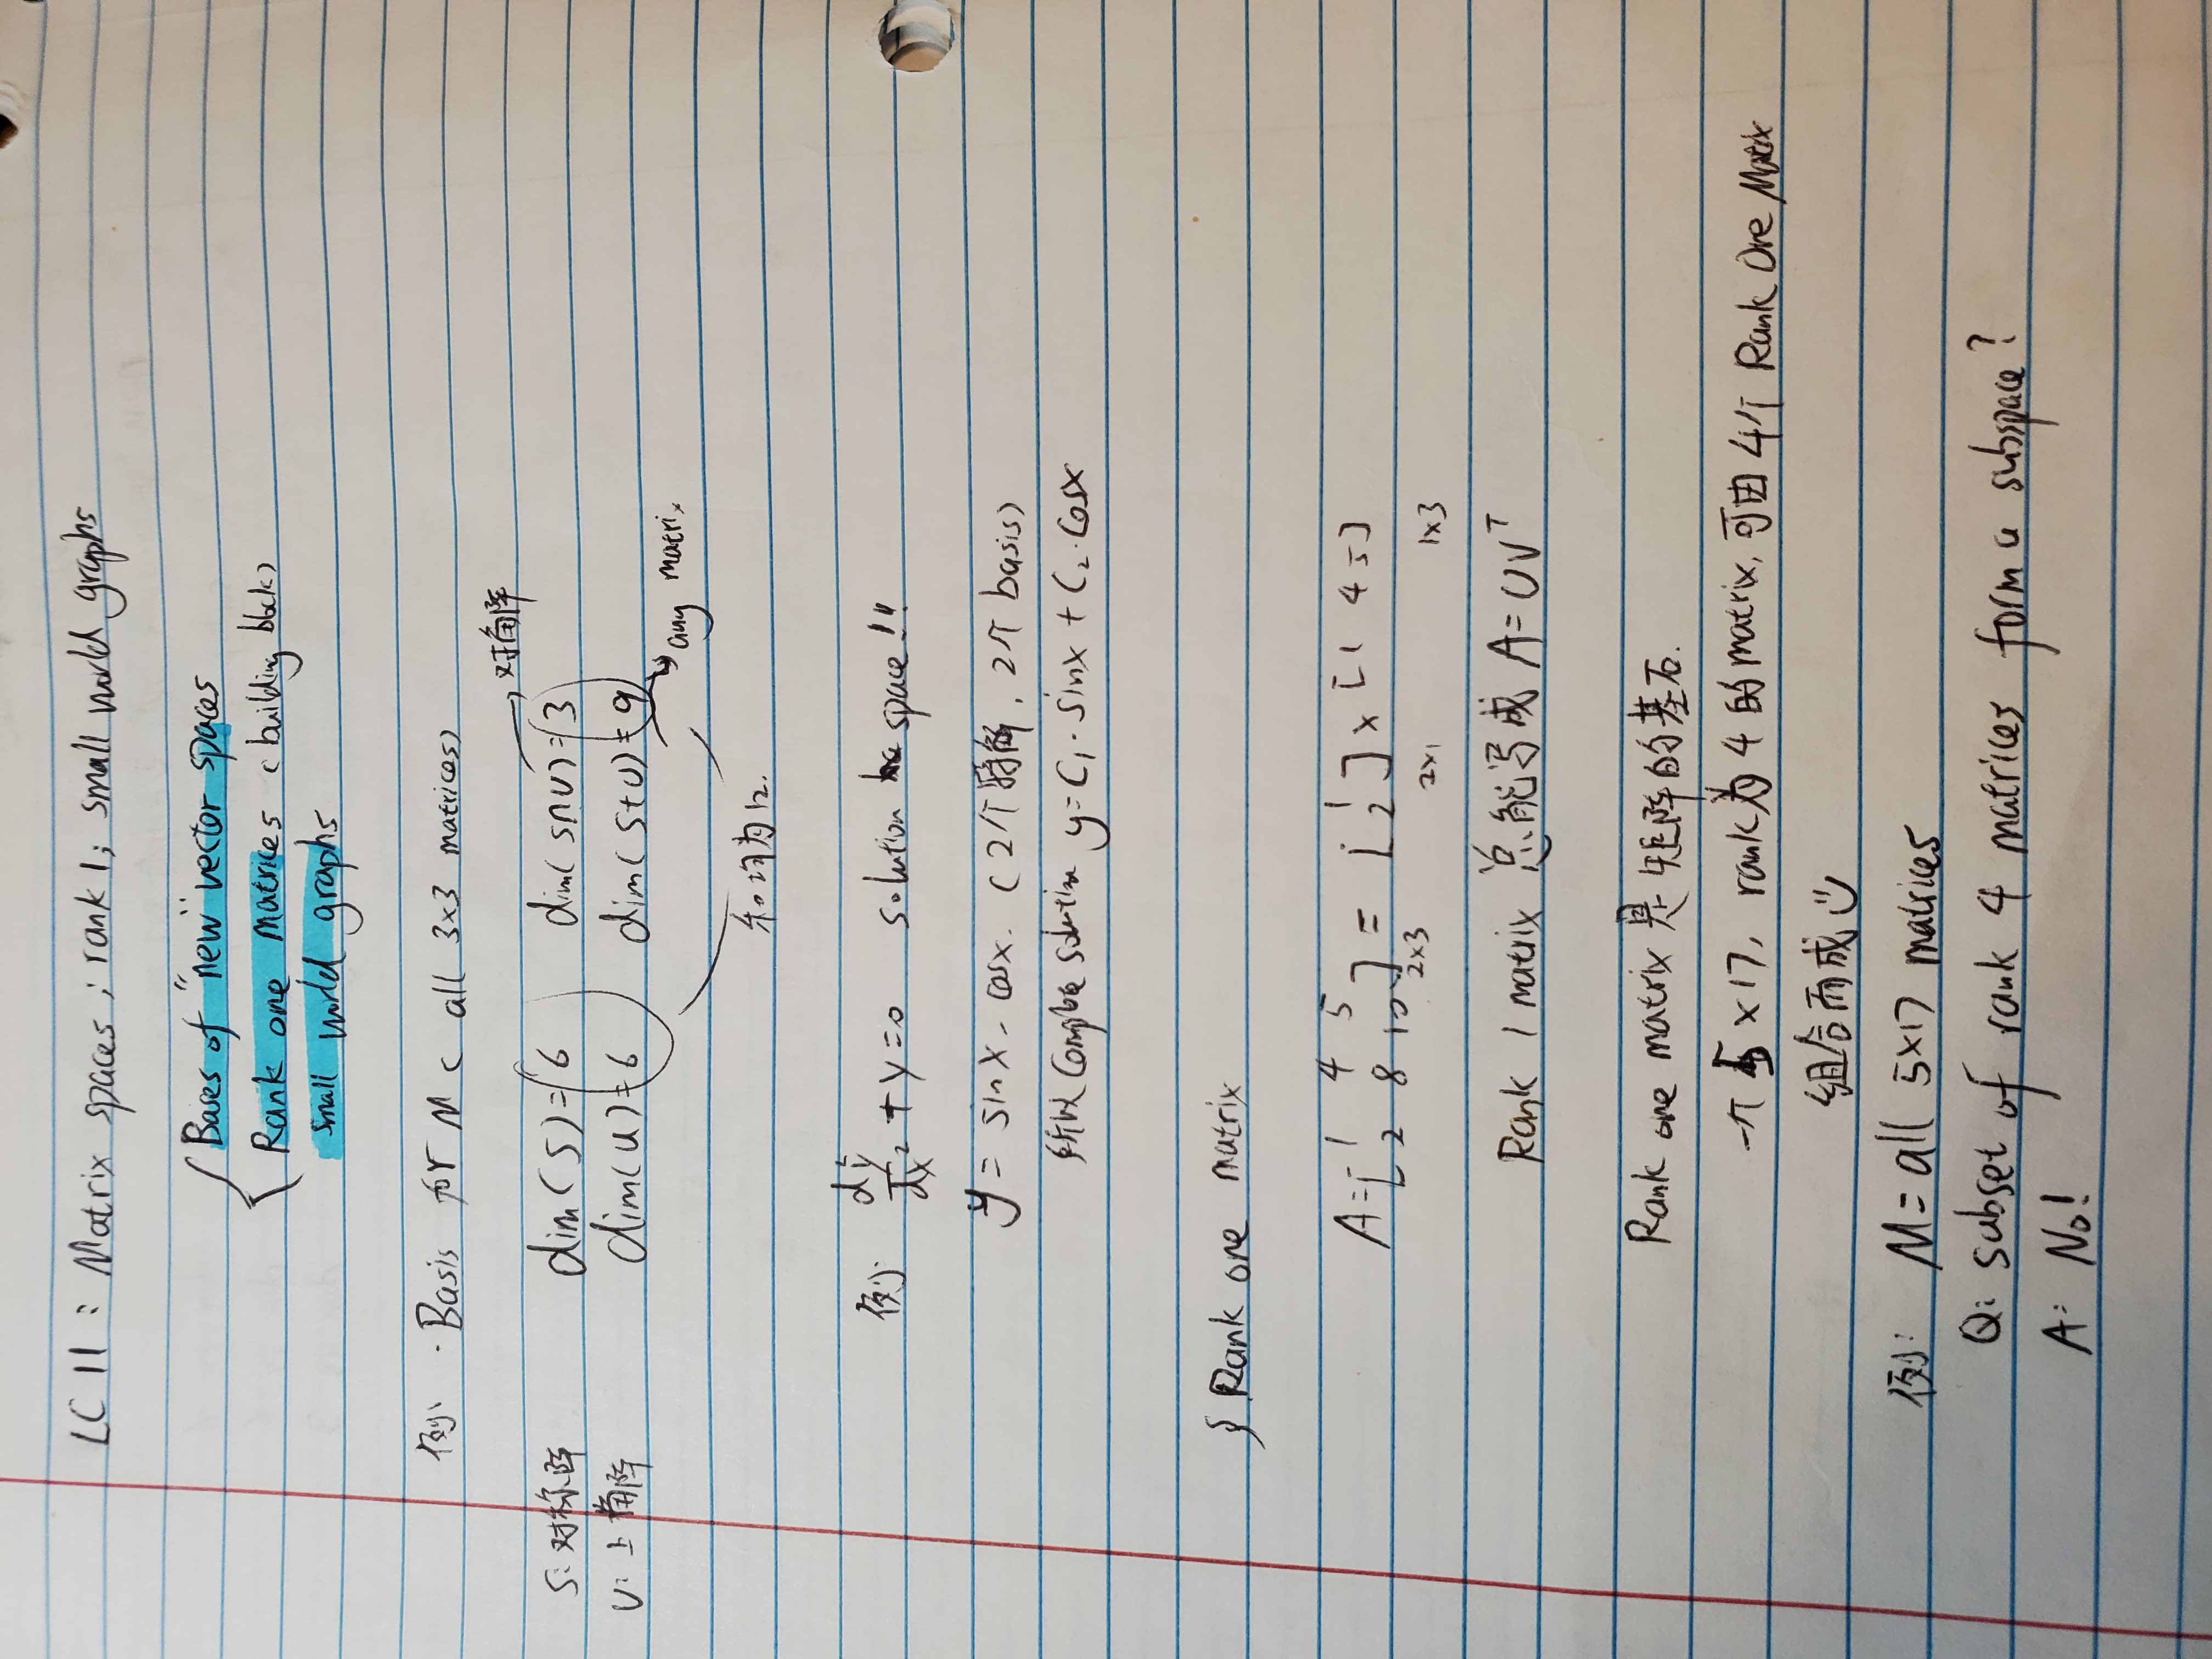 LC 11 : Matrix spaces ; rank 1; small world graphs
Bases of "new" vector spaces
Rank one matrices (building block)
small world graphs
例: · Basis for M ( all 3×3 matrices)
→ 对角阵
S: 对称阵 dim(S)=6 dim(S∩U)=3
U: 上角阵 dim(U)=6 dim(S+U)=9
→ any matrix
和均为12.
例: d²y/dx² + y=0 solution space!!
y= sinx、cosx. (2个特解, 2个basis)
所以 Complete solution y=C₁·sinx + C₂·cosx
§ Rank one matrix
A=[1 4 5
2 8 10]2×3 = [1
2]2×1 × [1 4 5]1×3
Rank 1 matrix 总能写成 A=UVᵀ
Rank one matrix 是矩阵的基石.
一个 5×17, rank为4的matrix, 可由4个 Rank One Matrix
组合而成
例: M= all 5×17 matrices
Q: subset of rank 4 matrices form a subspace?
A: No!